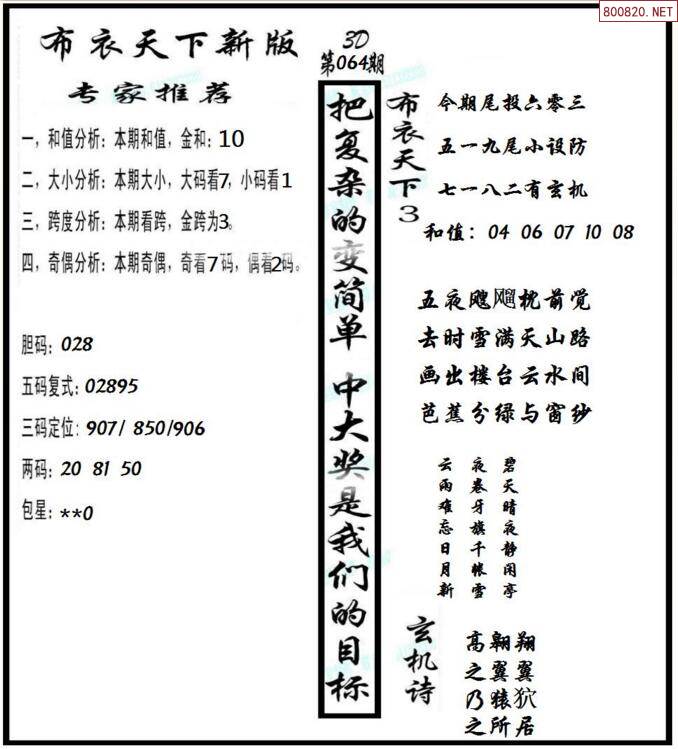 800820.NET
布衣天下新版
专家推荐
一，和值分析：本期和值，金和：10
二，大小分析：本期大小，大码看7，小码看1
三，跨度分析：本期看跨，金跨为3。
四，奇偶分析：本期奇偶，奇看7码，偶看2码。
胆码：028
五码复式：02895
三码定位：907/ 850/906
两码：20 81 50
包星：**0
3D
第064期
把复杂的变简单 中大奖是我们的目标
布衣天下3
今期尾投六零三
五一九尾小设防
七一八二有玄机
和值：04 06 07 10 08
五夜飕飗枕前觉
去时雪满天山路
画出楼台云水间
芭蕉分绿与窗纱
碧天晴夜静闲亭
夜卷牙旗千帐雪
云雨难忘日月新
玄机诗
高翱翔
之翼翼
乃猿狖
之所居